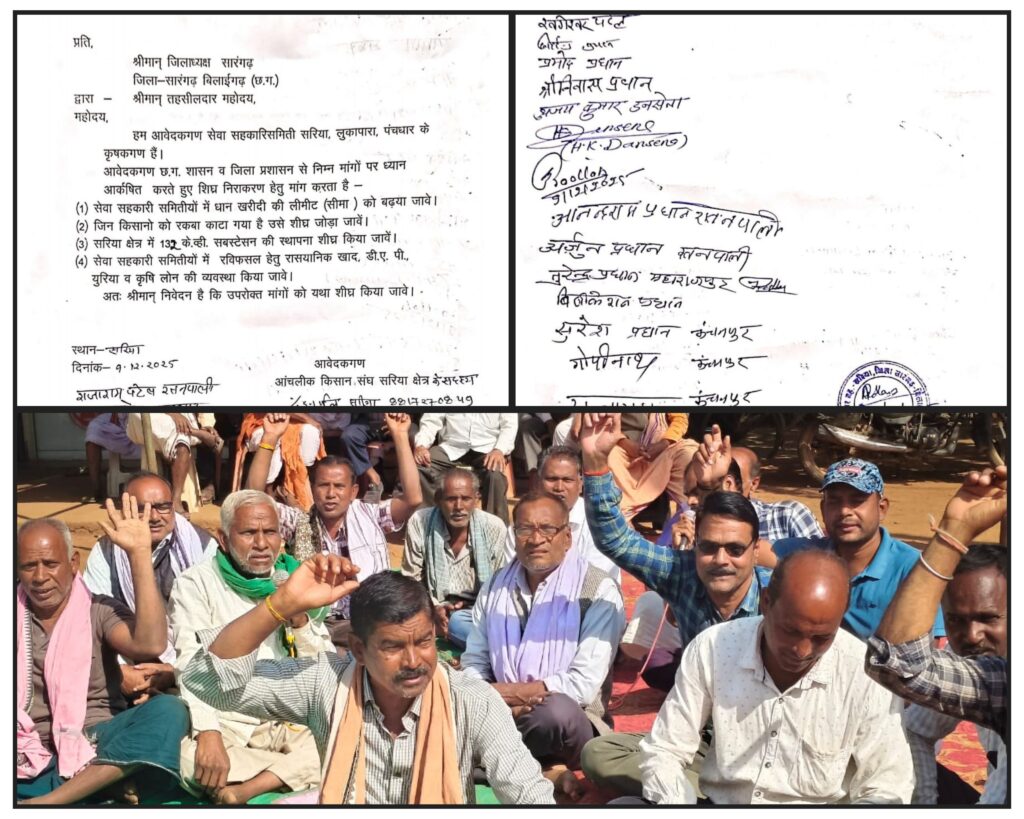 प्रति,
श्रीमान् जिलाध्यक्ष सारंगढ़
जिला–सारंगढ़ बिलाईगढ़ (छ.ग.)
द्वारा – श्रीमान् तहसीलदार महोदय,
महोदय,
हम आवेदकगण सेवा सहकारिसमिती सरिया, लुकापारा, पंचधार के
कृषकगण हैं।
आवेदकगण छ.ग. शासन व जिला प्रशासन से निम्न मांगों पर ध्यान
आर्कषित करते हुए शिघ्र निराकरण हेतु मांग करता है –
(1) सेवा सहकारी समितीयों में धान खरीदी की लीमीट (सीमा ) को बढ़या जावे।
(2) जिन किसानो को रकबा काटा गया है उसे शीघ्र जोड़ा जावें।
(3) सरिया क्षेत्र में 132 के.व्ही. सबस्टेसन की स्थापना शीघ्र किया जावें।
(4) सेवा सहकारी समितीयों में रविफसल हेतु रासयानिक खाद, डी.ए. पी.,
युरिया व कृषि लोन की व्यवस्था किया जावे।
अतः श्रीमान् निवेदन है कि उपरोक्त मांगों को यथा शीघ्र किया जावे।
स्थान– सरिया
दिनांक– 9.12.2025
आवेदकगण
आंचलीक किसान संघ सरिया क्षेत्र के सदस्य
राजाराम पटेल रतनपाली
पटेल
प्रमोद प्रधान
श्रीनिवास प्रधान
अजय कुमार डनसेना
Dansena
(H.K. Dansena)
आनन्दराम प्रधान रतनपाली
अर्जुन प्रधान रतनपाली
सुरेन्द्र प्रधान महाराजपुर
प्रधान
सुरेश प्रधान कंचनपुर
गोपीनाथ कंचनपुर
कंचनपुर